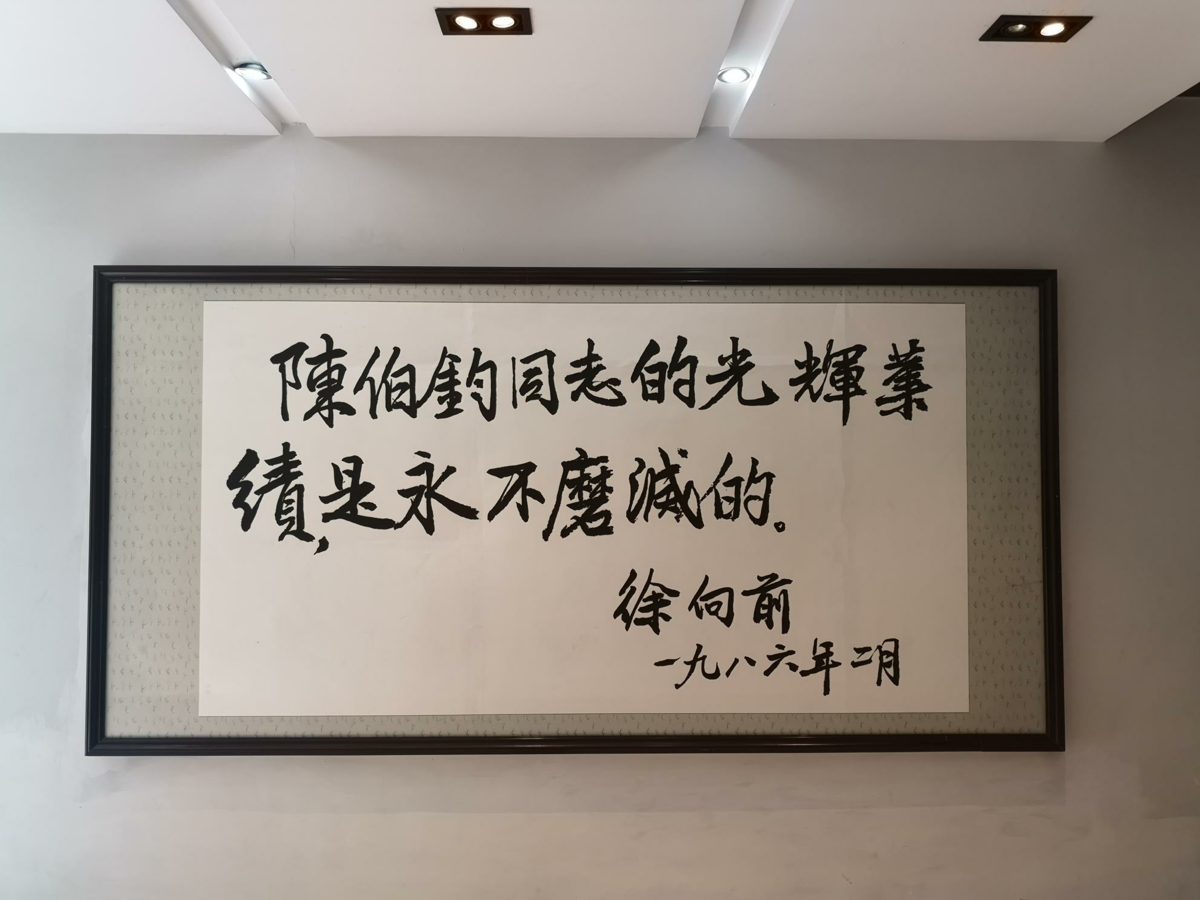 陳伯鈞同志的光輝業
績，是永不磨滅的。
徐向前
一九八六年二月